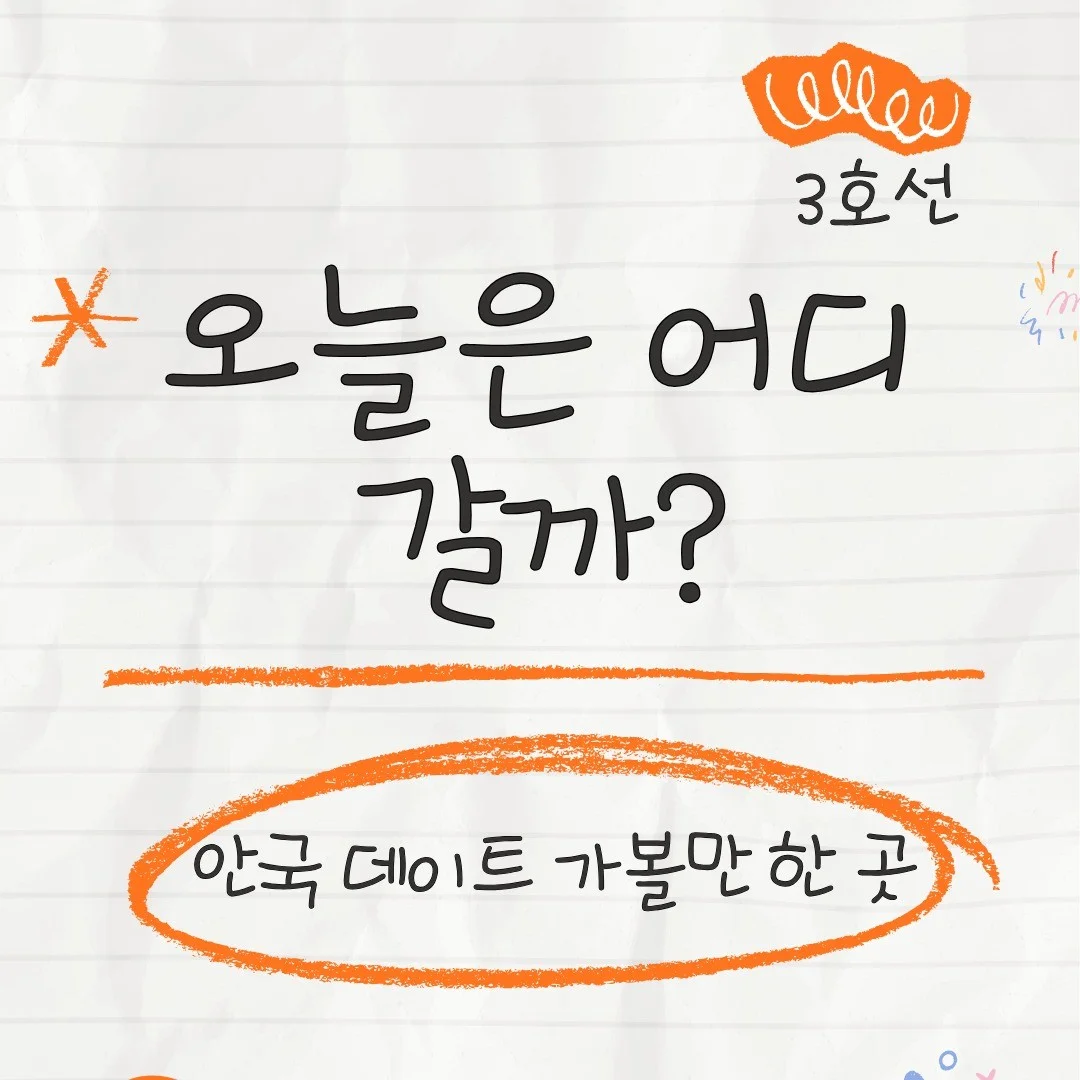 3호선
오늘은 어디
갈까?
안국 데이트 가볼만 한 곳